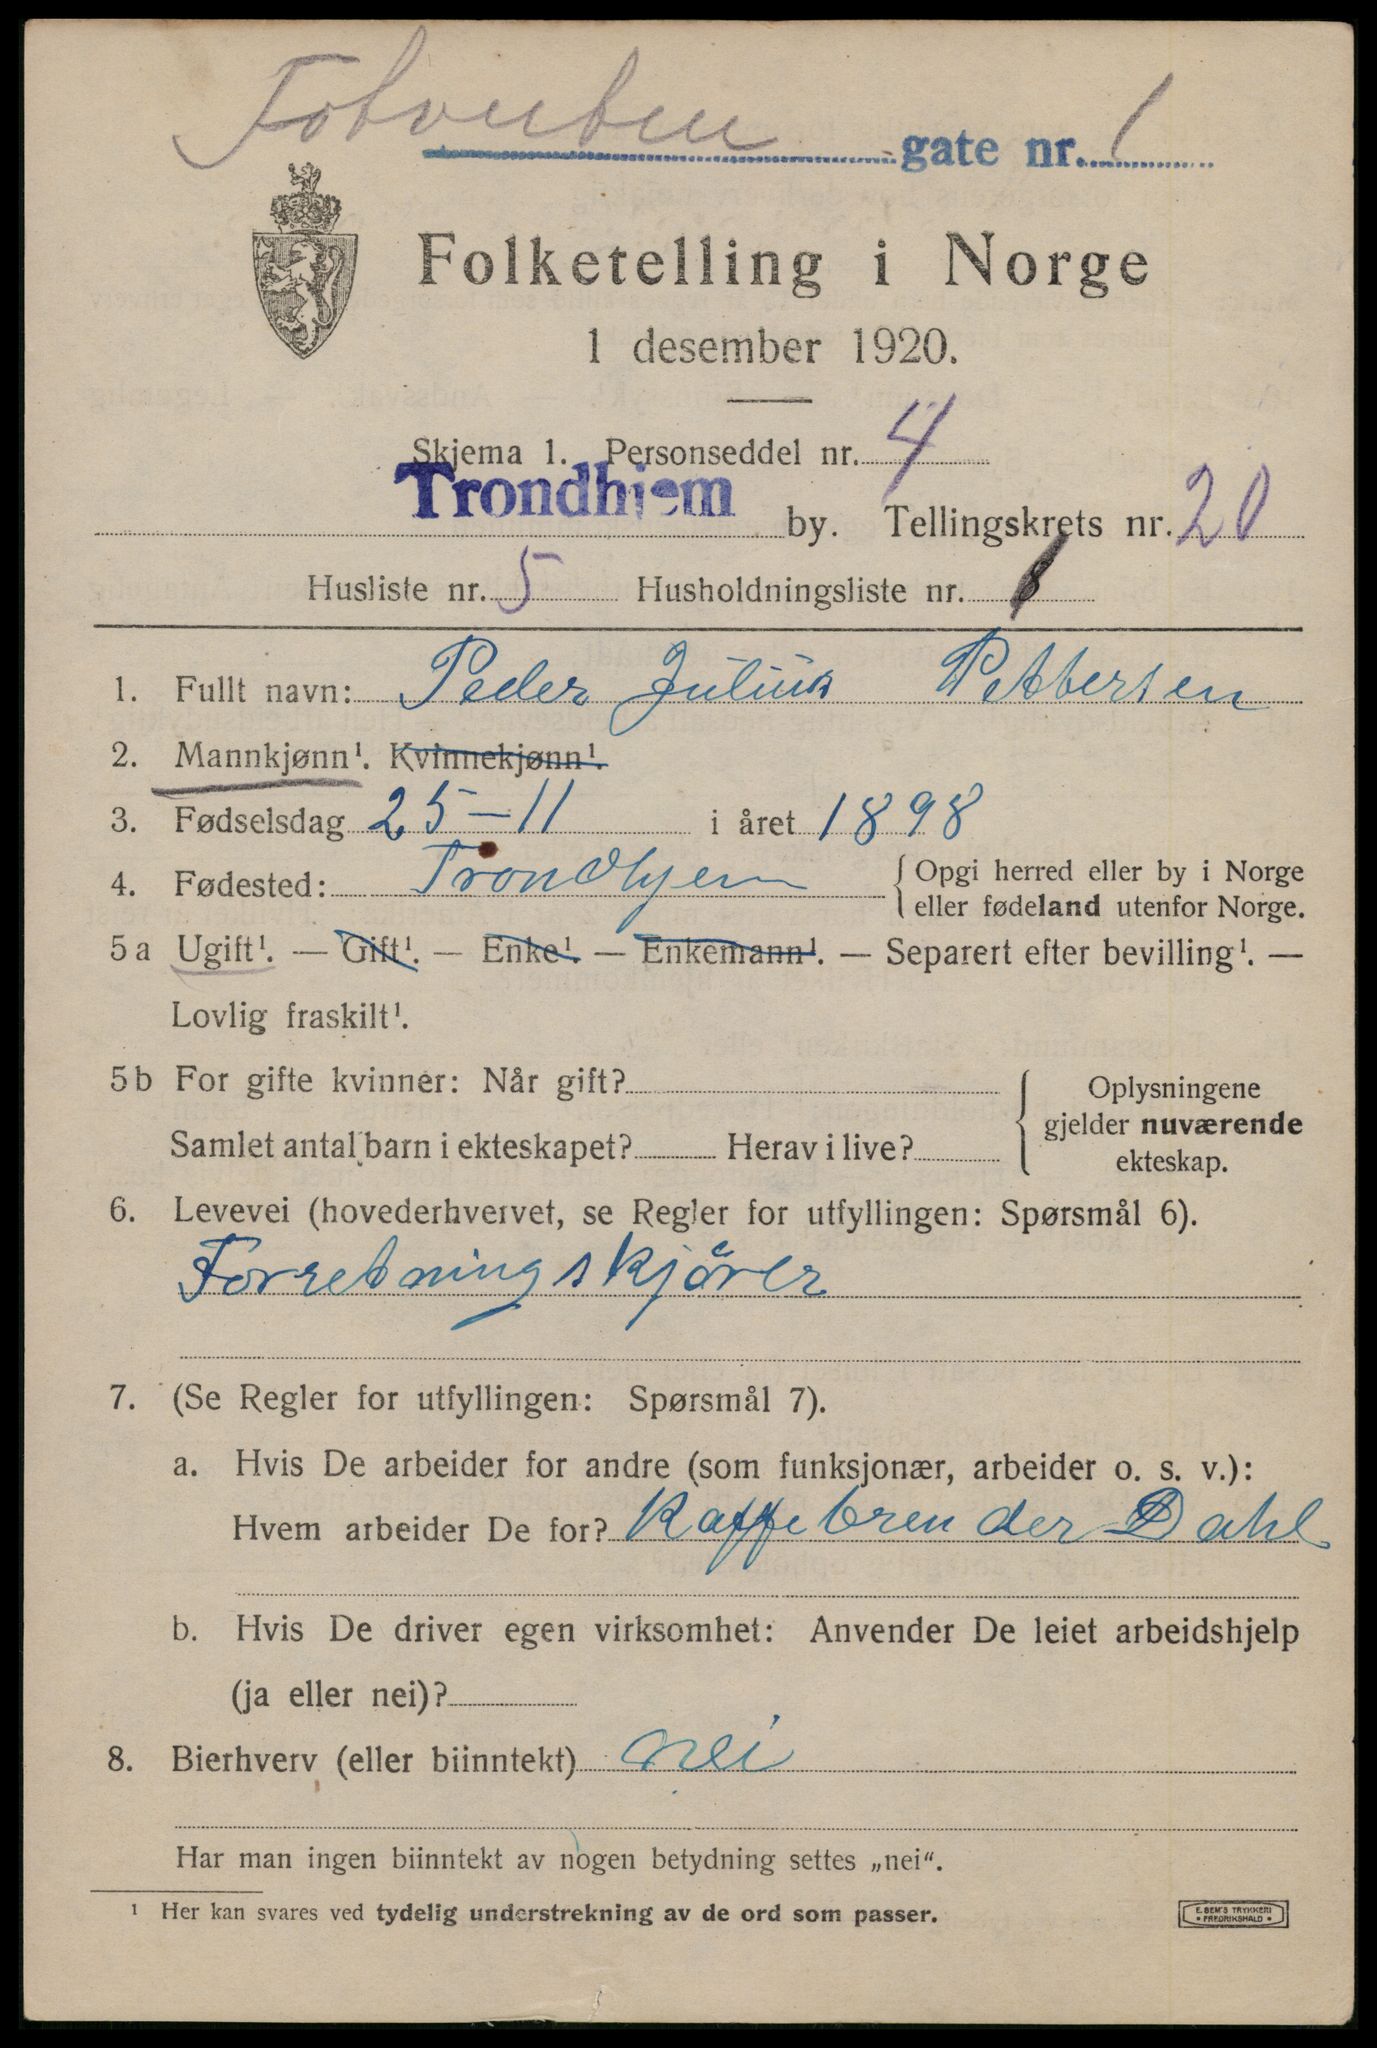 gate nr. 1
Folketelling i Norge
1 desember 1920.
Skjema 1. Personseddel nr. 4
Trondhjem by. Tellingskrets nr. 20
Husliste nr. 5 Husholdningsliste nr. 1
1. Fullt navn: Peder Julius Pettersen
2. Mannkjønn¹. Kvinnekjønn¹.
3. Fødselsdag 25-11 i året 1898
4. Fødested: Trondhjem { Opgi herred eller by i Norge
eller fødeland utenfor Norge.
5a Ugift¹. — Gift¹. — Enke¹. — Enkemann¹. — Separert efter bevilling¹. —
Lovlig fraskilt¹.
5b For gifte kvinner: Når gift? { Oplysningene
gjelder nuværende
Samlet antal barn i ekteskapet? Herav i live?
ekteskap.
6. Levevei (hovederhvervet, se Regler for utfyllingen: Spørsmål 6).
Forretningskjører
7. (Se Regler for utfyllingen: Spørsmål 7).
a. Hvis De arbeider for andre (som funksjonær, arbeider o. s. v.):
Hvem arbeider De for? Kaffebrender Dahl
b. Hvis De driver egen virksomhet: Anvender De leiet arbeidshjelp
(ja eller nei)?
8. Bierhverv (eller biinntekt) nei
Har man ingen biinntekt av nogen betydning settes „nei".
¹ Her kan svares ved tydelig understrekning av de ord som passer.
E. SEM'S TRYKKERI
• FREDRIKSHALD •